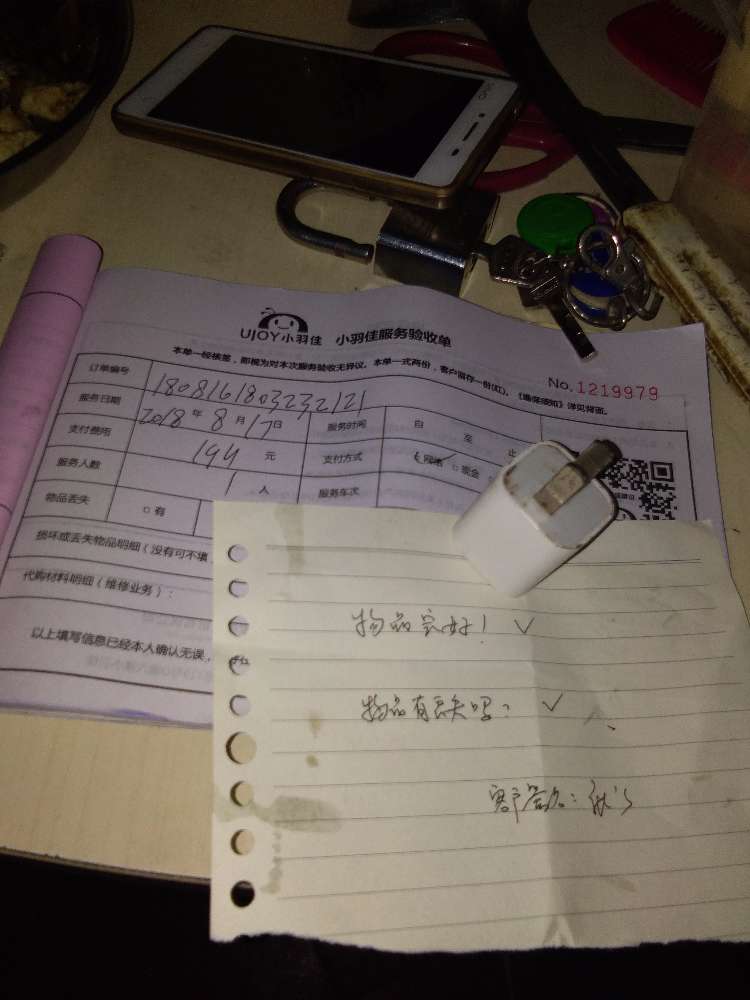 UJOY小羽佳 小羽佳服务验收单
本单一经核签，即视为对本次服务验收无异议。本单一式两份，客户留存一份(红)。《境保须知》详见背面。
No.1219979
订单编号 1808161803232121
服务日期 2018年8月17日 服务时间 自 至 止
支付费用 194元 支付方式 ✓网络 □现金
服务人数 1人 服务车次
物品丢失 □有
损坏或丢失物品明细（没有可不填
代购材料明细（维修业务）：
以上填写信息已经本人确认无误，
物品完好！ ✓
物品有丢失吗？ ✓
客户签名：
vivo